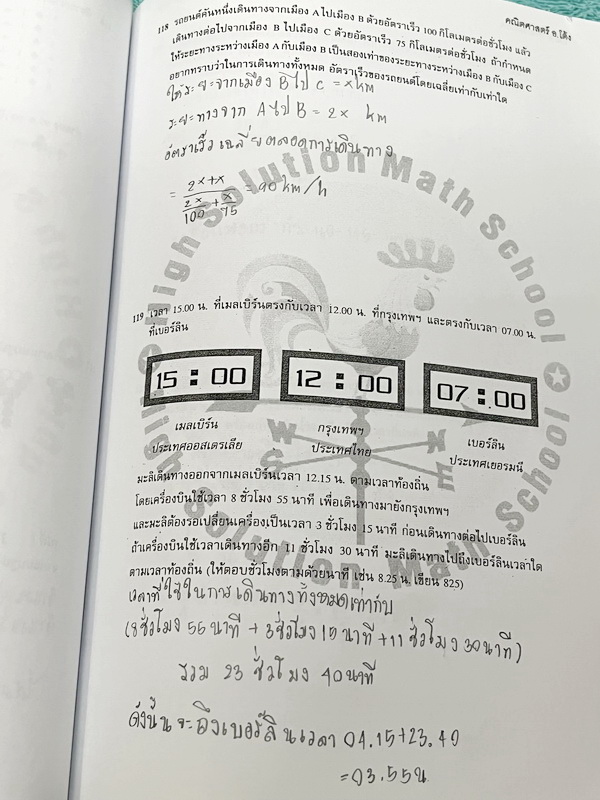 คณิตศาสตร์ อ.โต้ง
118 รถยนต์คันหนึ่งเดินทางจากเมือง A ไปเมือง B ด้วยอัตราเร็ว 100 กิโลเมตรต่อชั่วโมง แล้ว
เดินทางต่อไปจากเมือง B ไปเมือง C ด้วยอัตราเร็ว 75 กิโลเมตรต่อชั่วโมง ถ้ากำหนด
ให้ระยะทางระหว่างเมือง A กับเมือง B เป็นสองเท่าของระยะทางระหว่างเมือง B กับเมือง C
อยากทราบว่าในการเดินทางทั้งหมด อัตราเร็วของรถยนต์โดยเฉลี่ยเท่ากับเท่าใด
ให้ระยะจากเมือง B ไป C = x km
ระยะทางจาก A ไป B = 2x km
อัตราเร็วเฉลี่ยตลอดการเดินทาง
2x+x
= 2x/100 + x/75 = 90 km/h
119 เวลา 15.00 น. ที่เมลเบิร์นตรงกับเวลา 12.00 น. ที่กรุงเทพฯ และตรงกับเวลา 07.00 น.
ที่เบอร์ลิน
15:00 12:00 07:00
เมลเบิร์น กรุงเทพฯ เบอร์ลิน
ประเทศออสเตรเลีย ประเทศไทย ประเทศเยอรมนี
มะลิเดินทางออกจากเมลเบิร์นเวลา 12.15 น. ตามเวลาท้องถิ่น
โดยเครื่องบินใช้เวลา 8 ชั่วโมง 55 นาที เพื่อเดินทางมายังกรุงเทพฯ
และมะลิต้องรอเปลี่ยนเครื่องเป็นเวลา 3 ชั่วโมง 15 นาที ก่อนเดินทางต่อไปเบอร์ลิน
ถ้าเครื่องบินใช้เวลาเดินทางอีก 11 ชั่วโมง 30 นาที มะลิเดินทางไปถึงเบอร์ลินเวลาใด
ตามเวลาท้องถิ่น (ให้ตอบชั่วโมงตามด้วยนาที เช่น 8.25 น. เขียน 825)
เวลาที่ใช้ในการเดินทางทั้งหมดเท่ากับ
(8 ชั่วโมง 55 นาที + 3 ชั่วโมง 15 นาที + 11 ชั่วโมง 30 นาที)
รวม 23 ชั่วโมง 40 นาที
ดังนั้นจะถึงเบอร์ลินเวลา 04.15+23.40
=03.55น
High Solution Math School
High Solution Math School
W N S